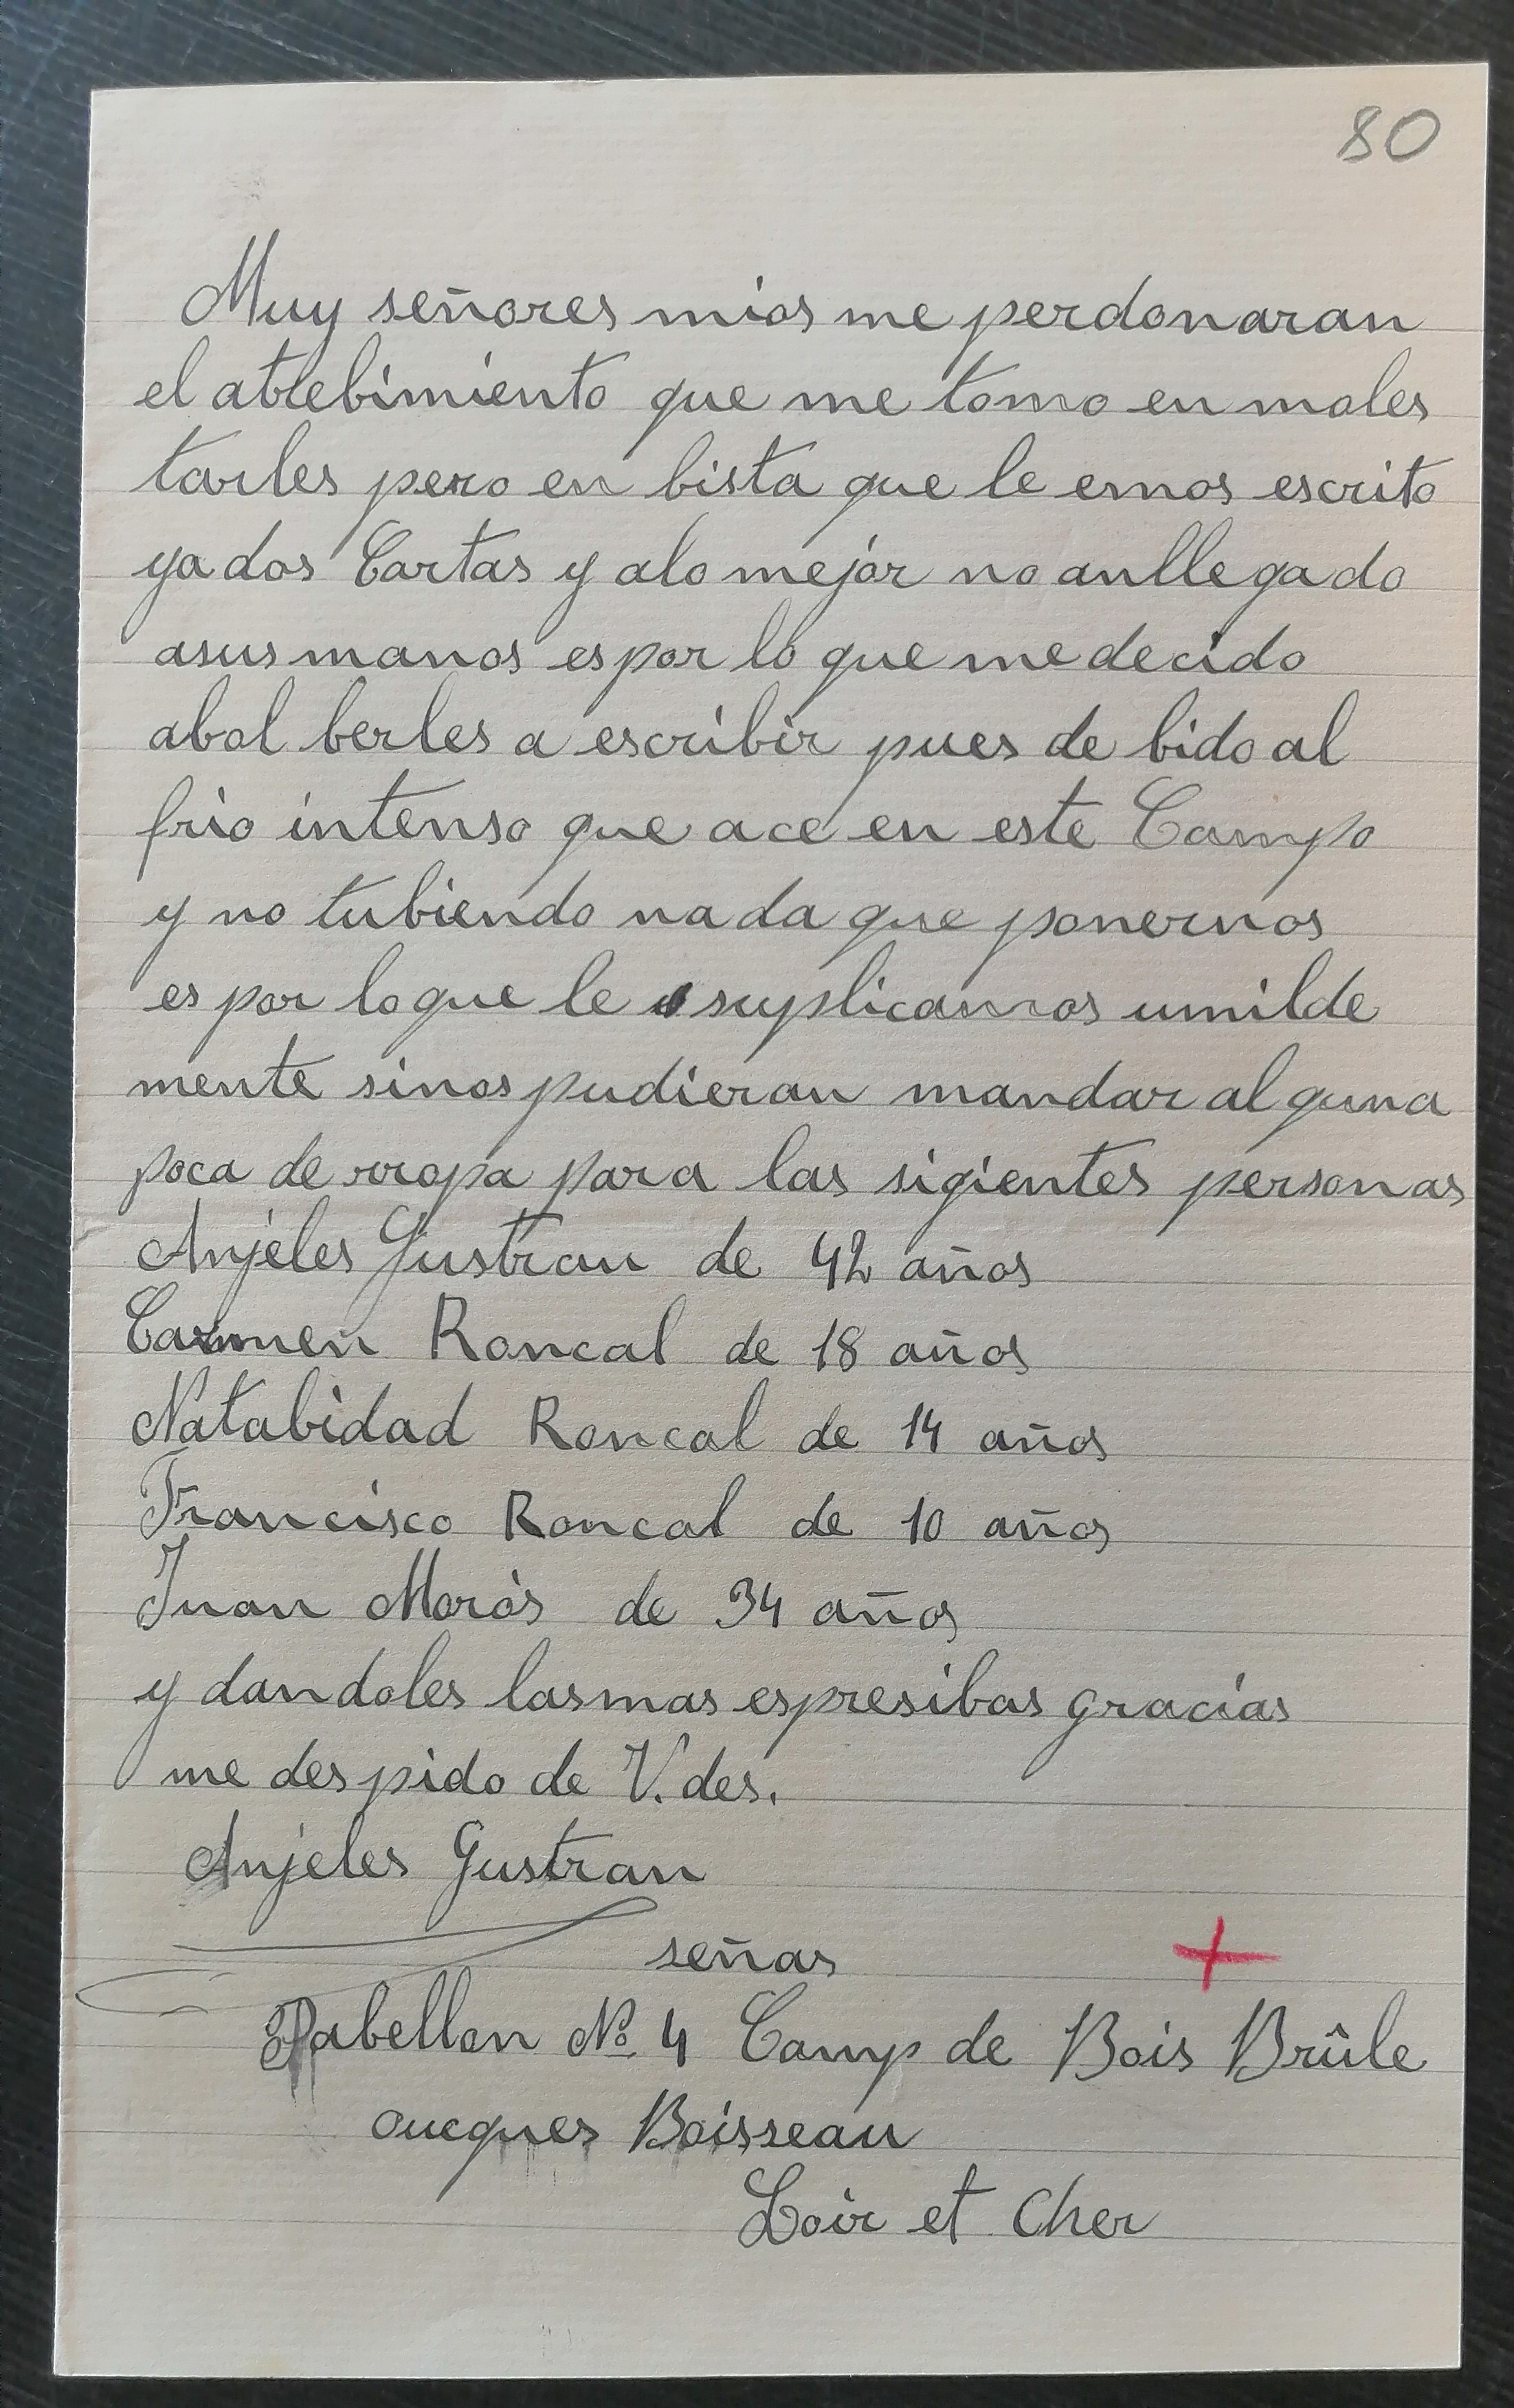 80
Muy señores mios me perdonaran
el atrebimiento que me tomo en moles
tarles pero en bista que le emos escrito
ya dos Cartas y alo mejor no anllegado
asus manos es por lo que me decido
abol berles a escribir pues de bido al
frio intenso que ace en este Campo
y no tubiendo nada que ponernos
es por lo que le suplicamos umilde
mente sinos pudieran mandar alguna
poca de rropa para las sigientes personas
Anjeles Gustran de 42 años
Carmen Roncal de 18 años
Natabidad Roncal de 14 años
Francisco Roncal de 10 años
Juan Moròs de 34 años
y dandoles las mas espresibas gracias
me despido de V.des.
Anjeles Gustran
señas
Pabellon No 4 Camp de Bois Brûle
oucques Boisseau
Loir et Cher